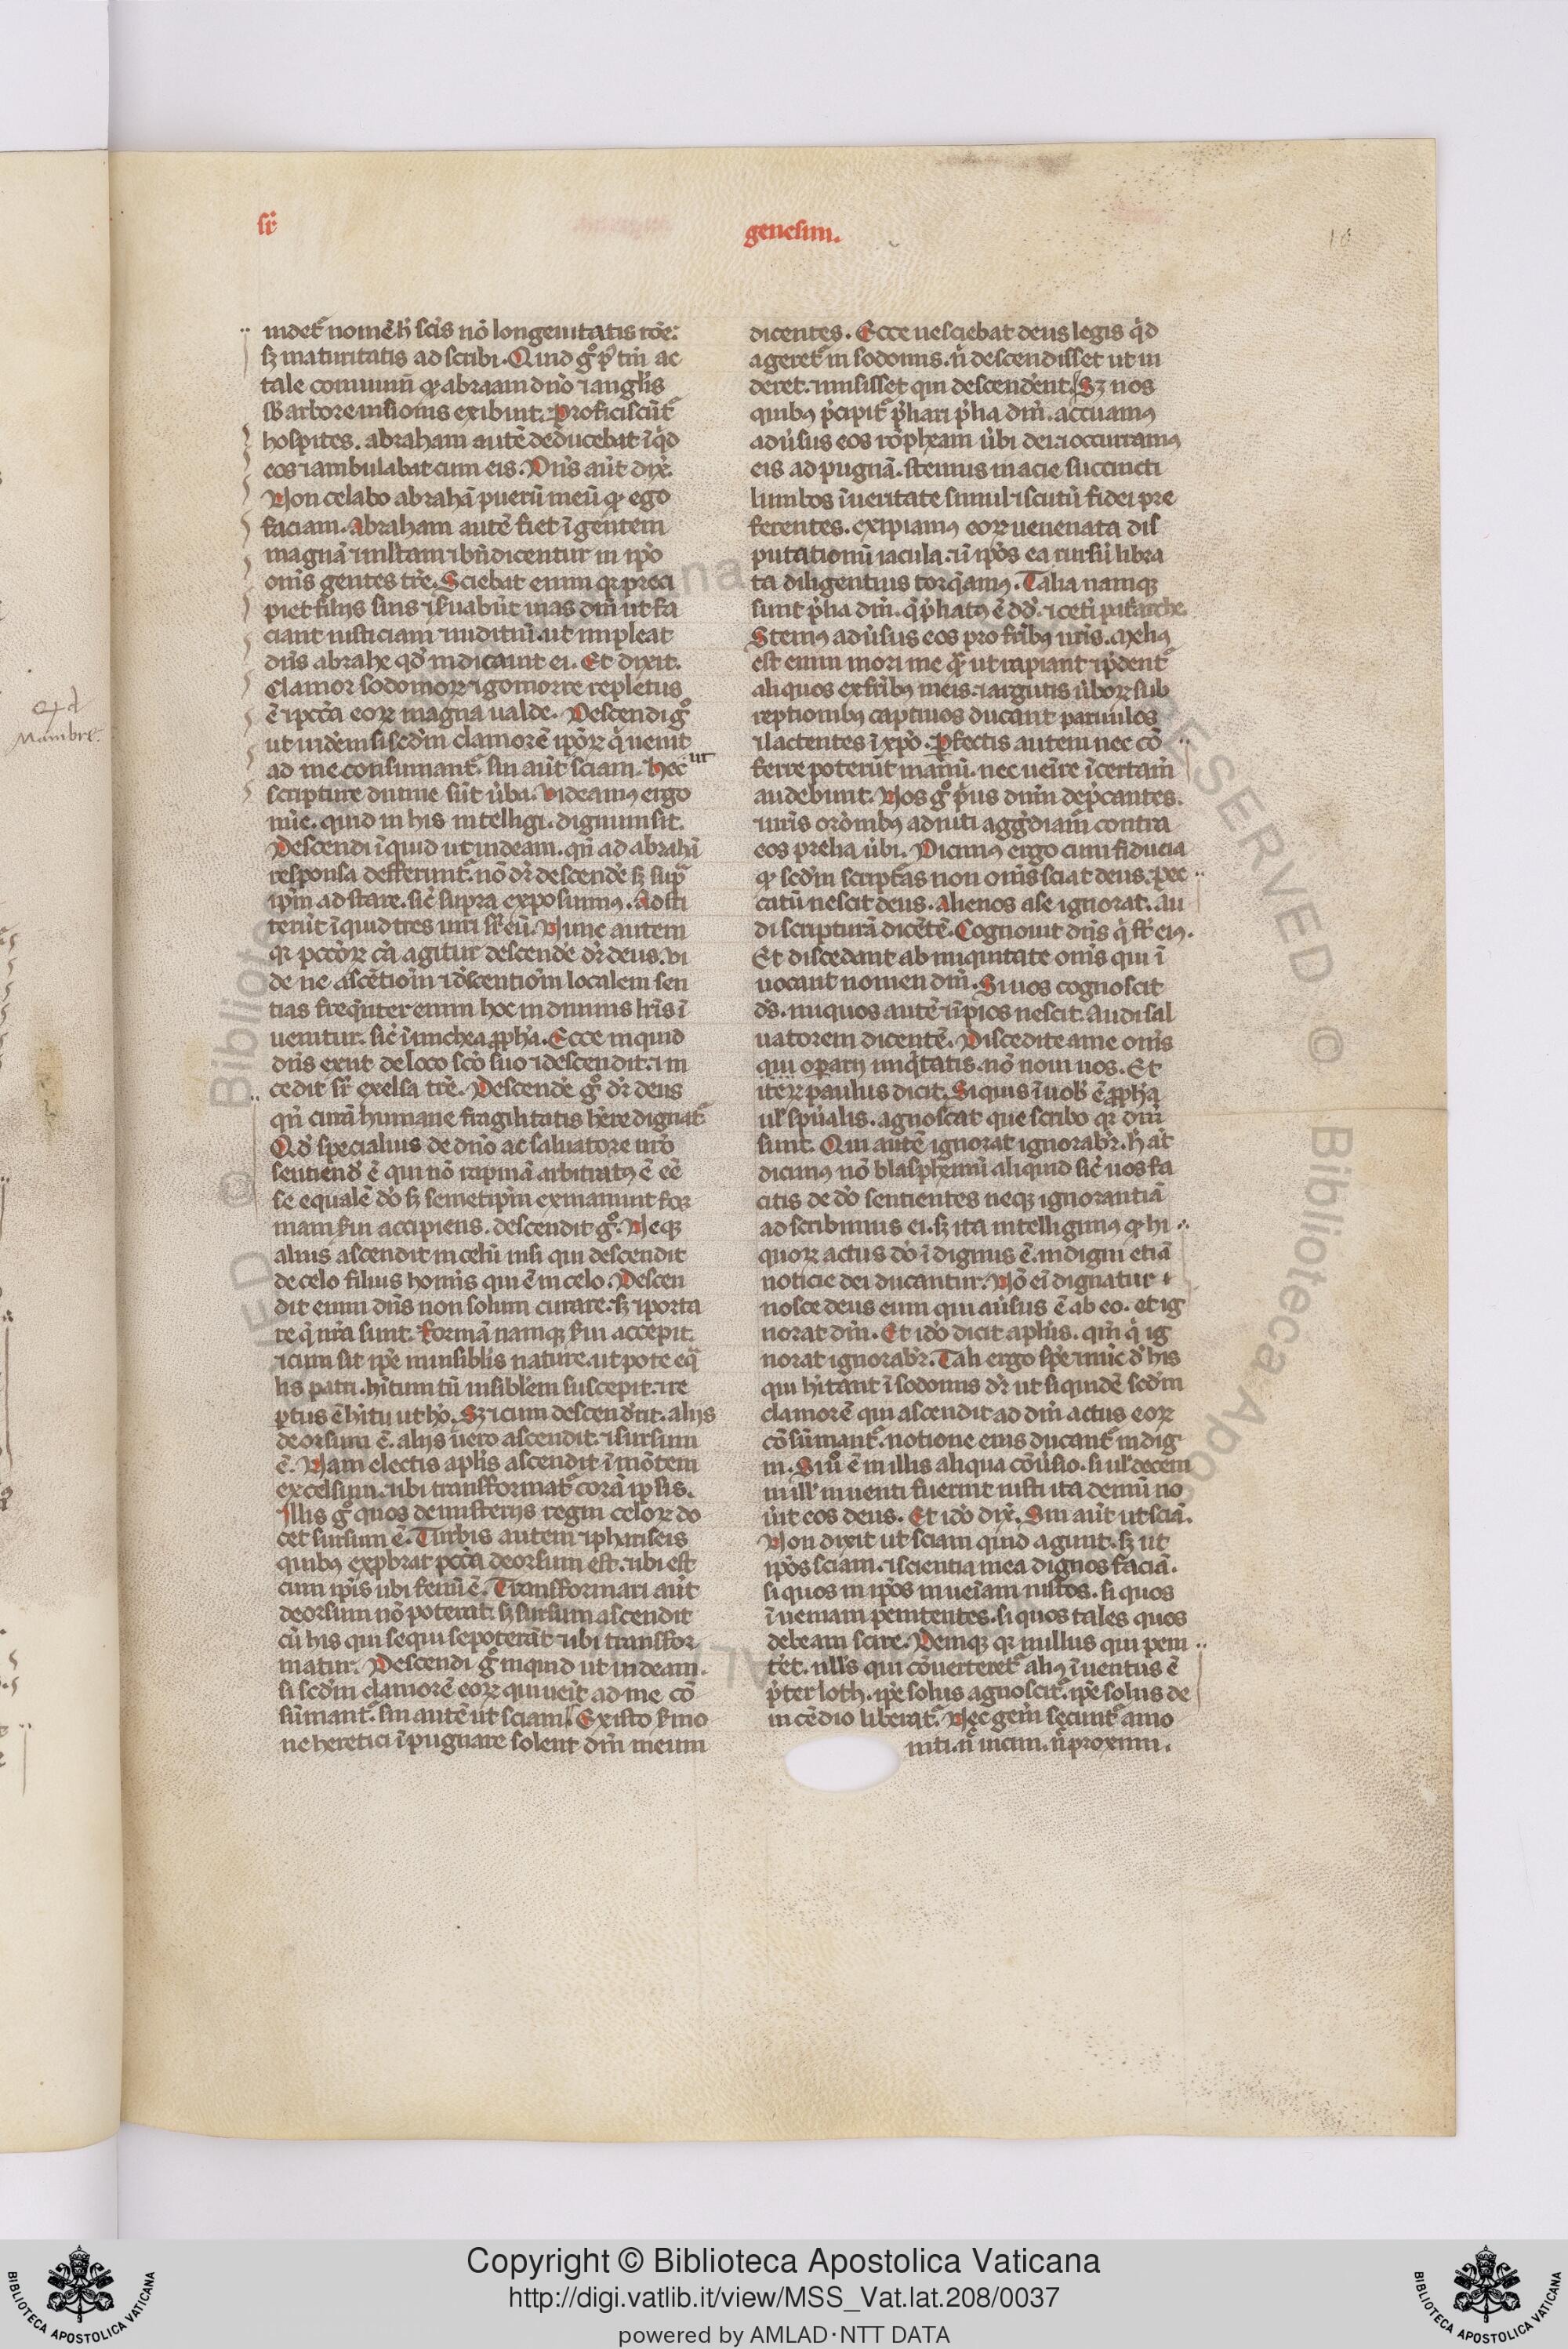 sr̄
genesim.
16
uidet᷑ nomē h̓ scīs nō longeuitatis rōe:
sꝫ maturitatis ad scribi. Quid gͦ pꝰ tm̄ ac
tale conuiuiū ꝙ abraam dn̄o ⁊ anglīs
sb̄ arbore insionis exibuit. Proficiscūt᷑
hospites. abraham autē deducebat īq̇d
eos ⁊ ambulabat cum eis. Dn̄s aūt dix̄.
Non celabo abrahā puerū meū ꝙ ego
faciam. Abraham autē fiet ī gentem
magnā ⁊ multam ⁊ bn̄dicentur in ip̄o
om̄s gentes tr̄e. Sciebat enim qꝛ preci
piet filijs suis ⁊ ẜuabūt uias dn̄i ut fa
ciant iusticiam ⁊ iuditiū. ut impleat
dn̄s abrahe qd̓ indicauit ei. Et dixit.
Clamor sodomoꝝ ⁊ gomorre repletus
ē ⁊ pccā eoꝝ magna ualde. Descendi gͦ
ut uidem̄ si scd̄m clamorē ip̄oꝝ q̄ uenit
ad me consumant᷑. sin aūt sciam. Hec
ut
scripture diuine sūt ūba. Videamꝰ ergo
nūc. quid in his intelligi. dignum sit.
Descendi īquid ut uideam. qn̄ ad abrahā
responsa defferunt᷑. nō dr̄ descende᷑ sꝫ supͣ
ip̄m ad stare. sic̄ supra exposuimꝰ. Adsti
terūt īquid tres uiri sr̄ eū. Nunc autem
qꝛ pccōꝝ cā agitur descende᷑ dr̄ deus. Vi
de ne ascētioīm ⁊ dscentioīm localem sen
tias freq̄nter enim hoc in diuinis lr̄is ī
uenitur. sic̄ ī michea ꝓph̄a. Ecce inquid
dn̄s exiit de loco scō suo ⁊ descendit. ⁊ in
cedit sr̄ exelsa tr̄e. Descende᷑ gͦ dr̄ deus
qn̄ curā humane fragilitatis hr̄e dignat᷑
Qd̓ specialius de dn̄o ac saluatore nr̄o
sentiend̄ ē qui nō rapinā arbitratꝰ ē eē
se equalē dō sꝫ semetip̄m exinaniuit for
mam ẜui accipiens. descendit gͦ. Neqꝫ
alius ascendit in celū nisi qui descendit
de celo filius homīs qui ē in celo. Descen
dit enim dn̄s non solum curare. sꝫ ⁊ porta
re q̄ nr̄a sunt. Formā namqꝫ ẜui accepit.
⁊ cum sit ip̄e inuisiblīs nature. ut pote eqͣ
lis patri. hītum tn̄ uisiblēm suscepit. ⁊ re
ptus ē hītu ut hō. Sꝫ ⁊ cum descend̓rit. alijs
deorsum ē. alijs uero ascendit. ⁊ sursum
ē. Nam electis aplīs ascendit ī mōtem
excelsum. ⁊ ubi transformat᷑ corā ip̄sis.
Illis gͦ quos de misterijs regni celoꝝ do
cet sursum ē. Turbis autem ⁊ phariseis
quibꝰ exprobrat pccā deorsum est. ⁊ ubi est
cum ip̄is ubi fenū ē. Transformari aūt
deorsum nō poterat. sꝫ sursum ascendit
cū his qui sequi se poterāt ⁊ ubi transfor
matur. Descendi gͦ inquid ut uideam.
si scd̄m clamorē eoꝝ qui ueīt ad me cō
sūmant᷑. sin autē ut sciam. Ex isto ẜmo
ne heretici īpugnare solent dm̄ meum
dicentes. Ecce nesciebat deus legis q̇d
ageret᷑ in sodomis. n̄ descendisset ut ui
deret. ⁊ misisset qui descend̓ent. Sꝫ nos
quibꝰ p̄cipit᷑ p̄liari p̄lia dn̄i. accuamꝰ
adūsus eos rōpheam ūbi dei. ⁊ occurramꝰ
eis ad pugnā. stemus in acie succincti
lumbos ī ueritate simul ⁊ scutū fidei pre
ferentes. excipiamꝰ eoꝝ uenenata dis
putationū iacula. ⁊ ī ip̄os ea rursū libra
ta diligentius torq̄amꝰ. Talia namqꝫ
sunt p̄lia dn̄i. q̄ p̄liatꝰ ē dd̄. ⁊ cet̓i patriarche.
Stemꝰ adūsus eos pro fr̄ibꝰ nr̄is. Meliꝰ
est enim mori me qͣꝫ ut rapiant ⁊ p̄dent᷑
aliquos ex fr̄ibꝰ meis. ⁊ argutis ūboꝝ sub
reptionibꝰ captiuos ducant paruulos
⁊ lactentes ī xp̄o. Perfectis autem nec cō
ferre poterūt manū. nec ueīre ī certam̄
audebunt. Nos gͦ p̄us dn̄m dep̄cantes.
⁊ uīs orōnibꝰ adiuti agg̓diam̄ contra
eos prelia ūbi. Dicimꝰ ergo cum fiducia
ꝙ scd̄m scriptas non om̄s sciat deus. pec
catū nescit deus. Alienos a se ignorat. Au
di scripturā dicētē. Cognouit dn̄s q̄ st̄ eiꝰ.
Et discedant ab iniquitate om̄s qui ī
uocant nomen dn̄i. Si uos cognoscit
ds̄. iniquos autē ⁊ īpios nescit. Audi sal
uatorem dicentē. Discedite a me om̄s
qui oꝑarij iniq̇tatis. nō noui uos. Et
iteꝝ paulus dicit. Si quis ī uob̄ ē ꝓph̄a
ul̄ spūalis. agnoscat que scribo qꝛ dn̄i
sunt. Qui autē ignorat ignorabr̄. H̄ aūt
dicimꝰ nō blasphemū aliquid sic̄ uos fa
citis de dō sentientes neqꝫ ignorantiā
ad scribimus ei. sꝫ ita intelligimꝰ ꝙ hi
quoꝝ actus dō ī dignus ē. indigni etiā
noticie dei ducantur. Nō eī dignatur
nosce deus eum qui aūsus ē ab eo. et ig
norat dm̄. Et idō dicit apl̄us. qm̄ q̇ ig
norat ignorabr̄. Tali ergo spē ⁊ nūc d̓ his
qui hītant ī sodomis dr̄ ut siquidē scd̄m
clamorē qui ascendit ad dm̄ actus eoꝝ
cōsūmant᷑. notione eius ducant᷑ indig
ni. Si uͦ ē in illis aliqua cōūsio. si ul̄ decem
in ill̄ inuenti fuerint iusti ita demū no
uit eos deus. Et idō dix̄. Sin aūt ut sciā.
Non dixit ut sciam quid agunt. sꝫ ut
ip̄os sciam. ⁊ scientia mea dignos faciā.
si quos in ip̄os inueīam iustos. si quos
īueniam penitentes. si quos tales quos
debeam scire. Deniqꝫ qꝛ nullus qui peni
tēt. nlls̄ qui cōuerteret᷑ aliꝰ īuentus ē
p̄ter loth. ip̄e solus agnoscit᷑. ip̄e solus de
incēdio liberat᷑. Nec gem̄ secunt᷑ amo
niti. n̄ uicini. n̄ proximi.
q d
Mambre.
Copyright © Biblioteca Apostolica Vaticana
http://digi.vatlib.it/view/MSS_Vat.lat.208/0037
powered by AMLAD·NTT DATA
BIBLIOTECA APOSTOLICA VATICANA
BIBLIOTECA APOSTOLICA VATICANA